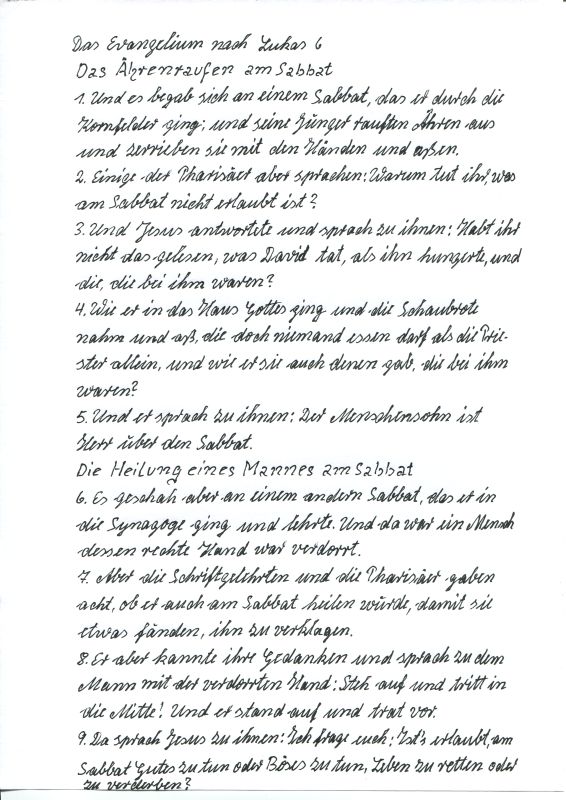 Das Evangelium nach Lukas 6
Das Ährenraufen am Sabbat
1. Und es begab sich an einem Sabbat, das er durch die
Kornfelder ging; und seine Jünger rauften Ähren aus
und zerrieben sie mit den Händen und aßen.
2. Einige der Pharisäer aber sprachen: Warum tut ihr, was
am Sabbat nicht erlaubt ist?
3. Und Jesus antwortete und sprach zu ihnen: Habt ihr
nicht das gelesen, was David tat, als ihn hungerte, und
die, die bei ihm waren?
4. Wie er in das Haus Gottes ging und die Schaubrote
nahm und aß, die doch niemand essen darf als die Prie-
ster allein, und wie er sie auch denen gab, die bei ihm
waren?
5. Und er sprach zu ihnen: Der Menschensohn ist
Herr über den Sabbat.
Die Heilung eines Mannes am Sabbat
6. Es geschah aber an einem andern Sabbat, das er in
die Synagoge ging und lehrte. Und da war ein Mensch
dessen rechte Hand war verdorrt.
7. Aber die Schriftgelehrten und die Pharisäer gaben
acht, ob er auch am Sabbat heilen würde, damit sie
etwas fänden, ihn zu verklagen.
8. Er aber kannte ihre Gedanken und sprach zu dem
Mann mit der verdorrten Hand: Steh auf und tritt in
die Mitte! Und er stand auf und trat vor.
9. Da sprach Jesus zu ihnen: Ich frage euch: Ist's erlaubt, am
Sabbat Gutes zu tun oder Böses zu tun, Leben zu retten oder
zu verderben?